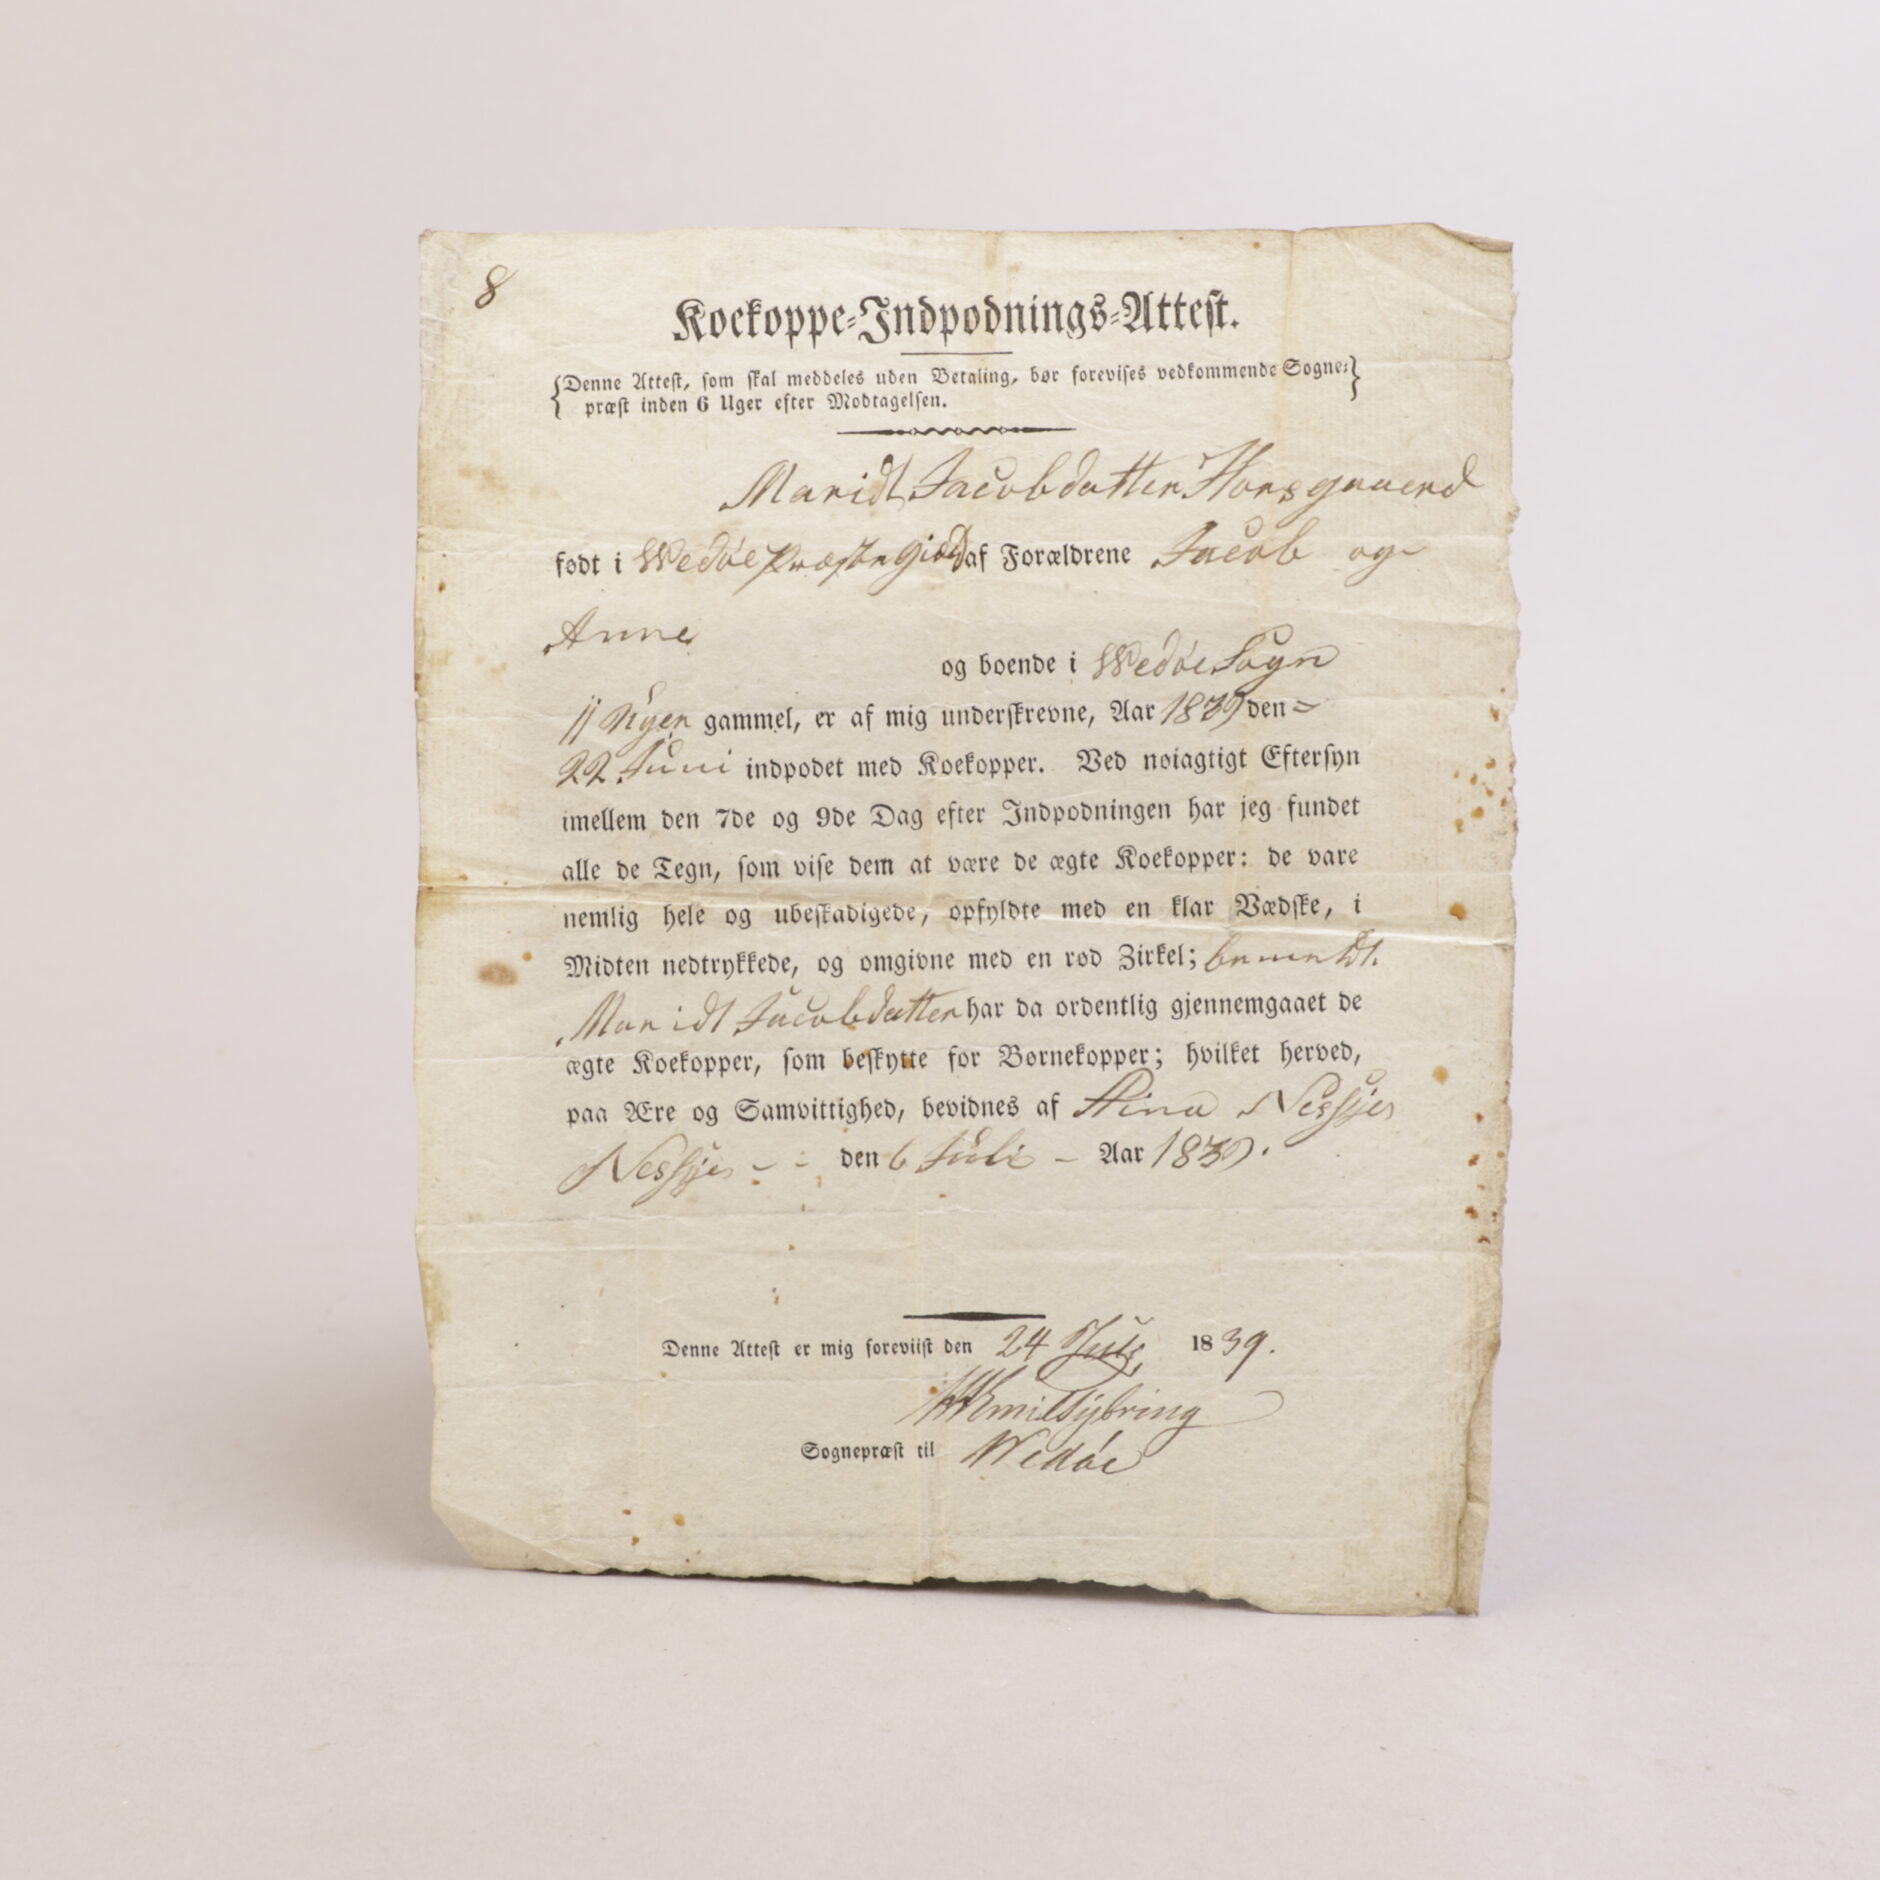 8
Koekoppe-Indpodnings-Attest.
Denne Attest, som skal meddeles uden Betaling, bør forevises vedkommende Sogne-
præst inden 6 Uger efter Modtagelsen.
Maridt Jacobdatter Horsgaaerd
født i Wedøe Præstegield af Forældrene Jacob og
Anne
og boende i Wedøe Sogn
11 Uger gammel, er af mig underskrevne, Aar 1839 den
22 Juni indpodet med Koekopper. Ved nøiagtigt Eftersyn
imellem den 7de og 9de Dag efter Indpodningen har jeg fundet
alle de Tegn, som vise dem at være de ægte Koekopper: de vare
nemlig hele og ubeskadigede, opfyldte med en klar Vædske, i
Midten nedtrykkede, og omgivne med en rød Zirkel;
Maridt Jacobdatter har da ordentlig gjennemgaaet de
ægte Koekopper, som beskytte for Børnekopper; hvilket herved,
paa Ære og Samvittighed, bevidnes af Stina Nessjes
Nessjes - - den 6 Juli - Aar 1839.
Denne Attest er mig foreviist den 24 July 1839.
Sognepræst til Wedøe